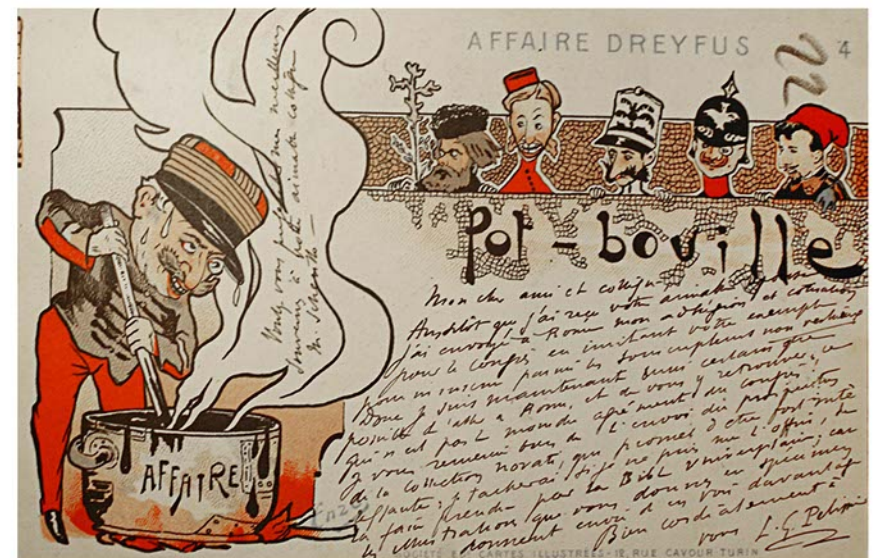 AFFAIRE DREYFUS 4
22
Pot-bouille
AFFAIRE
Mon cher ami et collègue
Aussitôt que j'ai reçu votre aimable
j'ai envoyé à Rome mon adhésion et cotisation
pour le Congrès en imitant votre exemple
pour m'inscrire parmi les souscripteurs non
Donc je suis maintenant certain que
d'aller à Rome, et de vous y retrouver, ce
qui n'est pas le moindre agrément du congrès.
Je vous remercie bien de l'envoi du prospectus
de la collection Novati, qui promet d'être fort inté
ressante; je tacherai si je ne puis me l'offrir, de
la faire prendre par la Bibl. Universitaire; car
les illustrations que vous donnez en specimen
donnent envie d'en voir davantage
Bien cordialement à
vous L. G. Pélissier
SOCIÉTÉ CARTES ILLUSTRÉES-12, RUE CAVOUR-TURIN